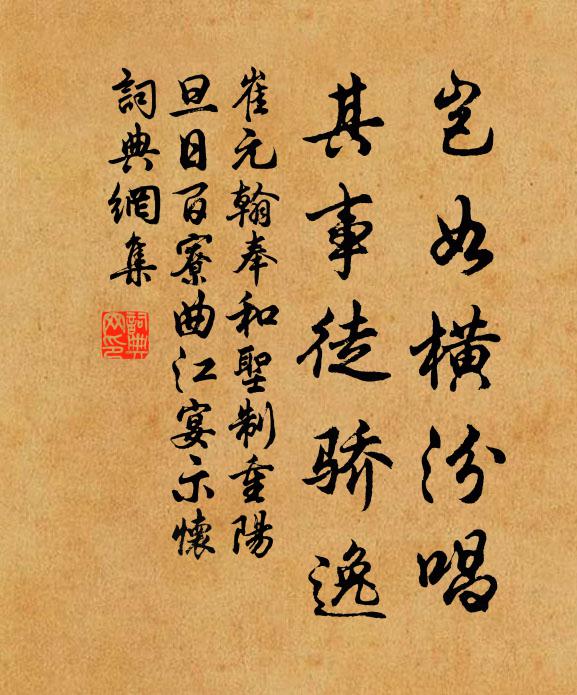 岂如横汾唱
其事徒骄逸
崔元翰奉和聖制重陽
旦日百寮曲江宴示懷
詞典網集
詞典
网印